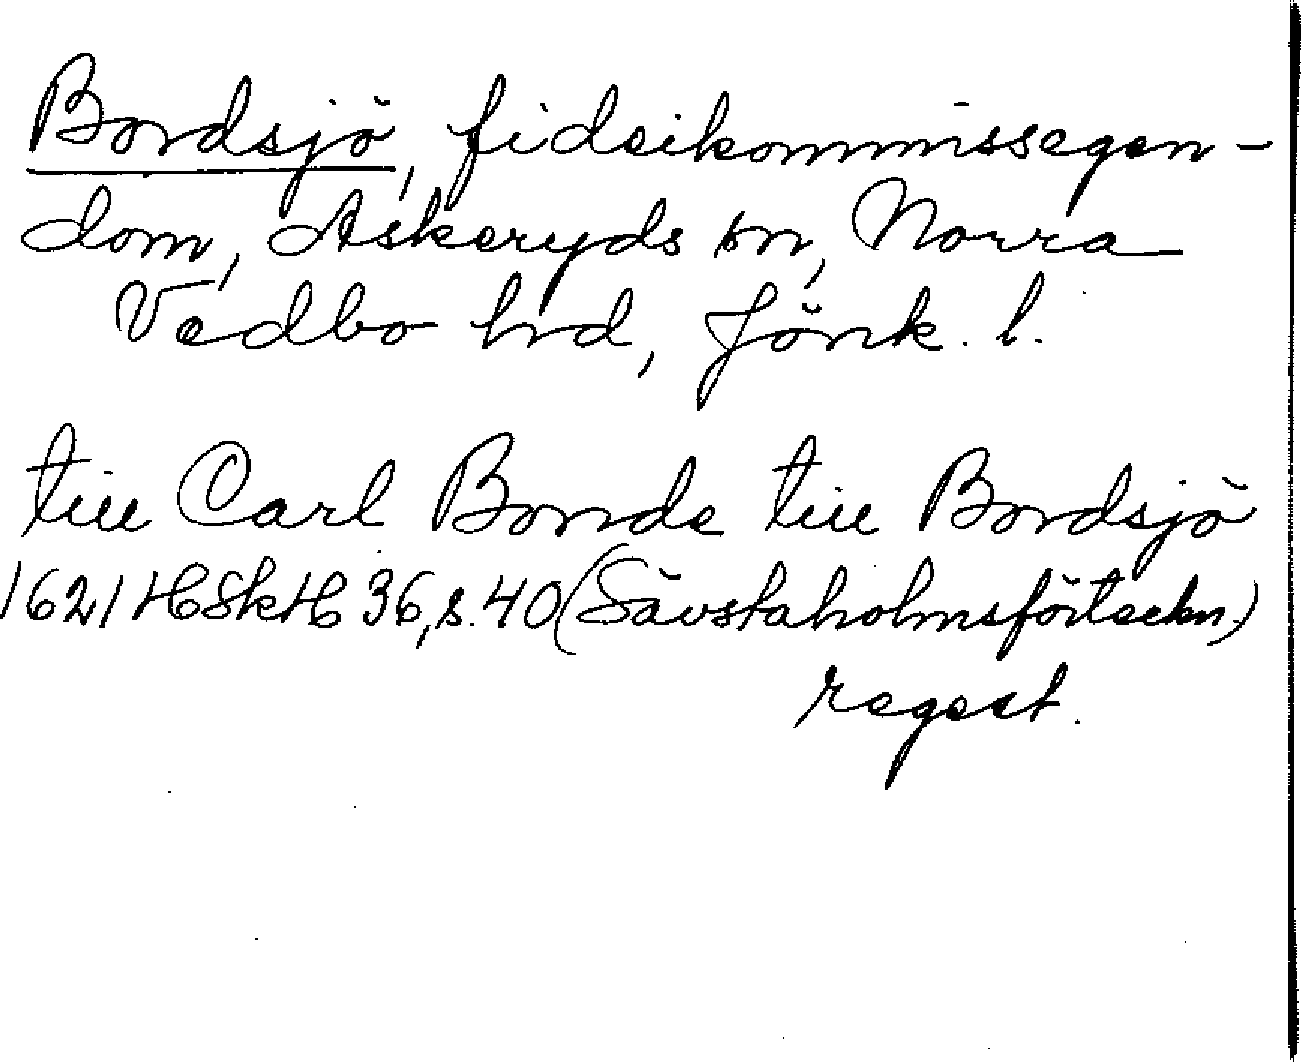 Bordsjö, fideikommissegen-
dom, Askeryds sn, Norra
Vedbo hrd, Jönk. l.
till Carl Bonde till Bordsjö
1621 HSkH 36, s. 40 (Sävstaholmsförteckn.)
regest.